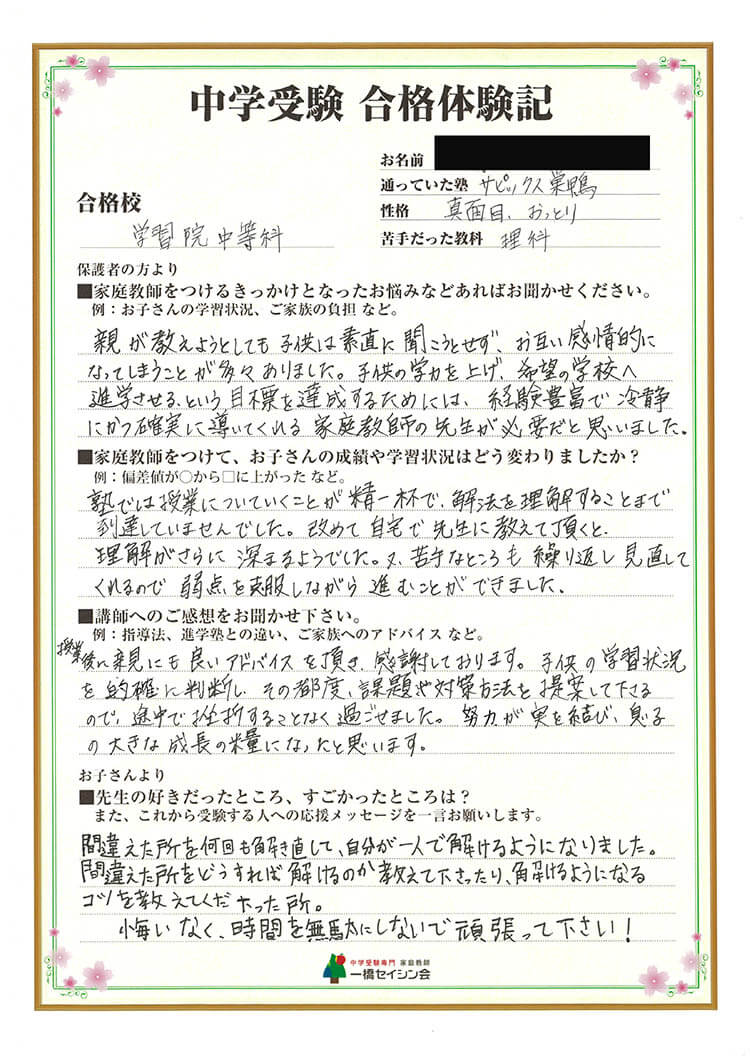 中学受験 合格体験記
お名前
通っていた塾 サピックス巣鴨
合格校
性格 真面目、おっとり
学習院中等科
苦手だった教科 理科
保護者の方より
■家庭教師をつけるきっかけとなったお悩みなどあればお聞かせください。
例：お子さんの学習状況、ご家族の負担 など。
親が教えようとしても子供は素直に聞こうとせず、お互い感情的に
なってしまうことが多々ありました。子供の学力を上げ、希望の学校へ
進学させる、という目標を達成するためには、経験豊富で冷静
にかつ確実に導いてくれる家庭教師の先生が必要だと思いました。
■家庭教師をつけて、お子さんの成績や学習状況はどう変わりましたか？
例：偏差値が○から□に上がった など。
塾では授業についていくことが精一杯で、解法を理解することまで
到達していませんでした。改めて自宅で先生に教えて頂くと、
理解がさらに深まるようでした。又、苦手なところも繰り返し見直して
くれるので弱点を克服しながら進むことができました。
■講師へのご感想をお聞かせ下さい。
例：指導法、進学塾との違い、ご家族へのアドバイス など。
授業後に親にも良いアドバイスを頂き、感謝しております。子供の学習状況
を的確に判断し、その都度、課題や対策方法を提案して下さる
ので、途中で挫折することなく過ごせました。努力が実を結び、息子
の大きな成長の糧になったと思います。
お子さんより
■先生の好きだったところ、すごかったところは？
また、これから受験する人への応援メッセージを一言お願いします。
間違えた所を何回も解き直して、自分が一人で解けるようになりました。
間違えた所をどうすれば解けるのか教えて下さったり、解けるようになる
コツを教えてくだ下った所。
悔いなく、時間を無駄にしないで頑張って下さい！
中学受験専門 家庭教師
一橋セイシン会